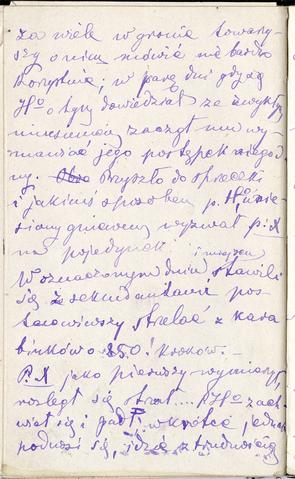 za wiele w gronie towarzy-
szy o nim mówić nie bardzo
korzystnie; w parę dni gdy się
Ho o tym dowiedział ze zwykłym
zaczął mu wy-
mawiać jego postępek niegod-
ny. Przyszło do sprzeczki
i jakimś sposobem p. Ho unie-
siony gniewem wyzwał p. X
na pojedynek.
W oznaczonym dniu i miejscu stawili
się z sekundantami pos-
tanowiwszy strzelać z kara
binków o 150! kroków. –
P. X jako pierwszy wymierzył,
rozległ się strzał... P. Ho zach-
wiał się i padł; wkrótce jednak
podnosi się, idzie z trudnością